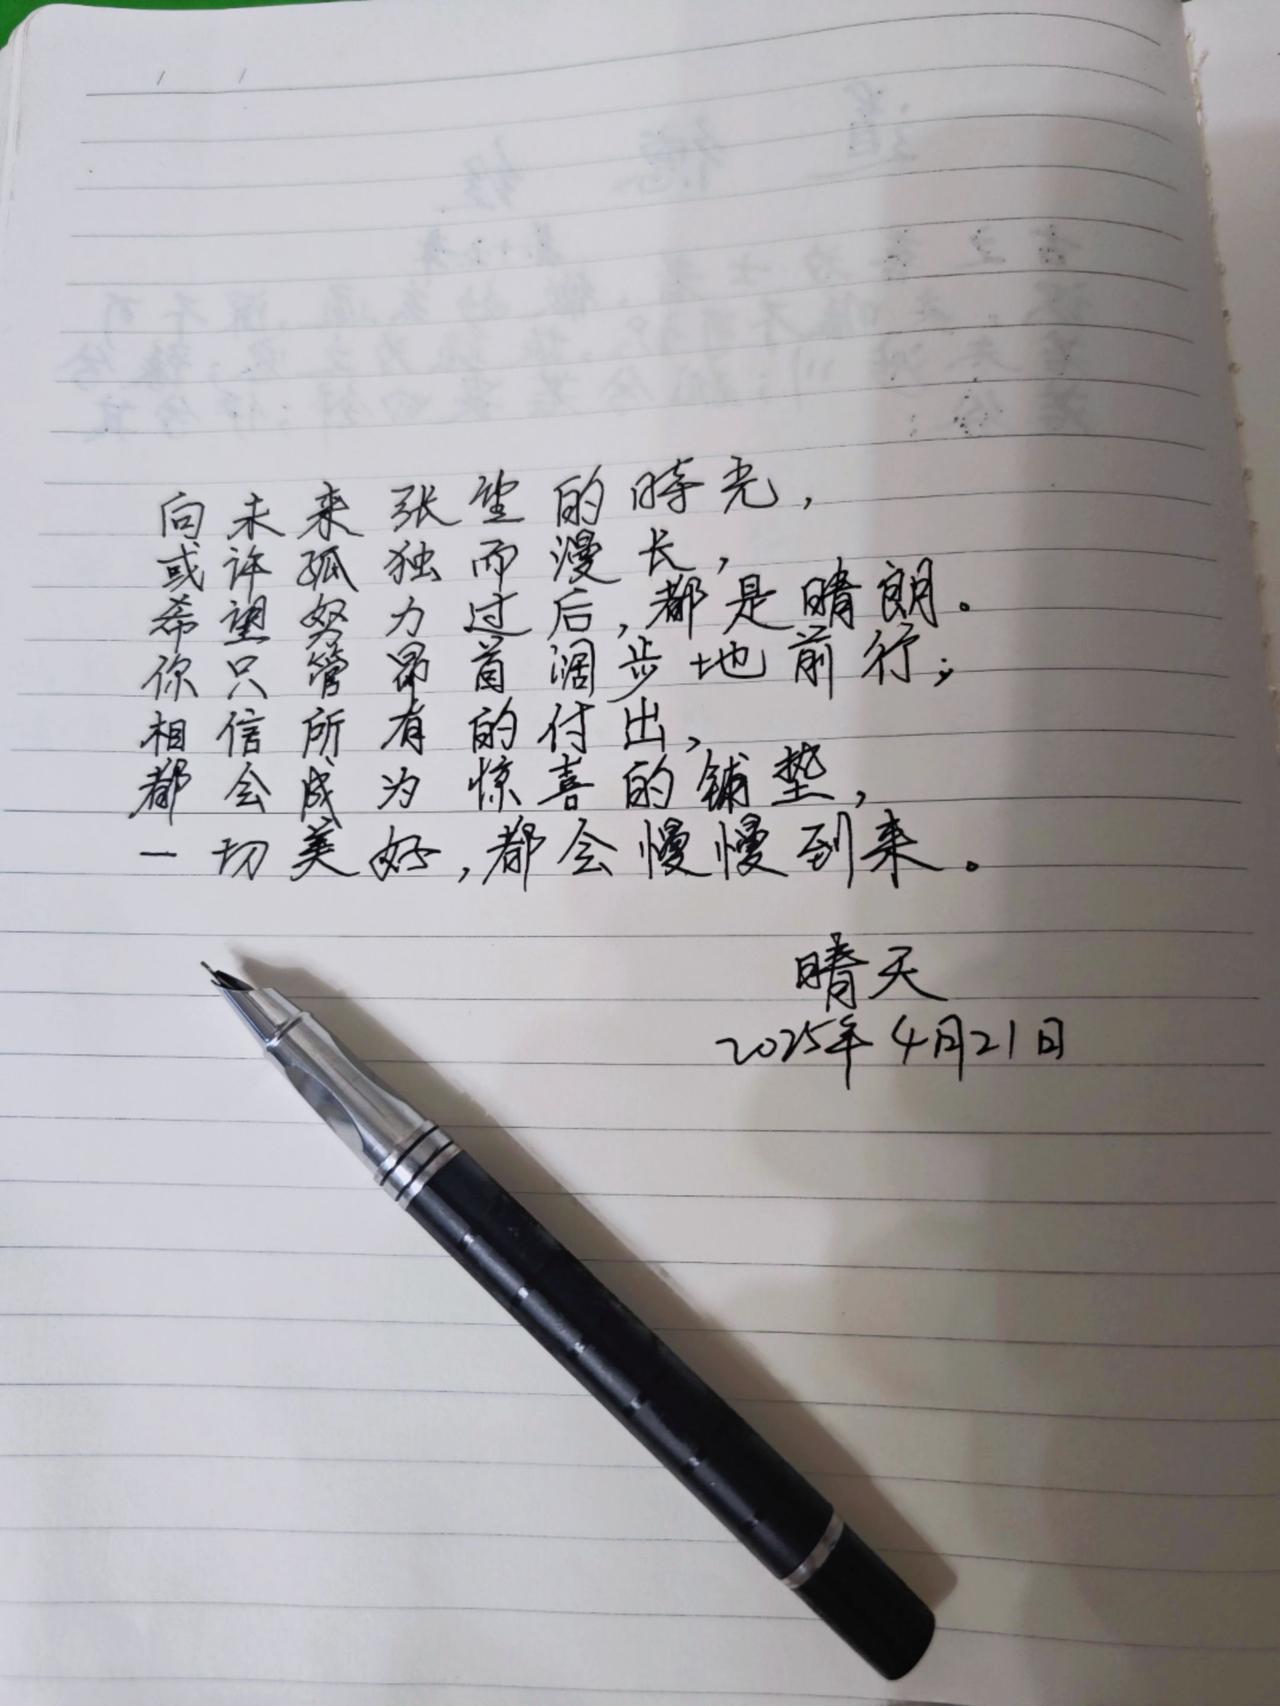 向未来张望的時光，
或许孤独而漫长，
希望努力过后，都是晴朗。
你只管昂首阔步地前行；
相信所有的付出，
都会成为惊喜的铺垫，
一切美好，都会慢慢到来。
晴天
2025年4月21日